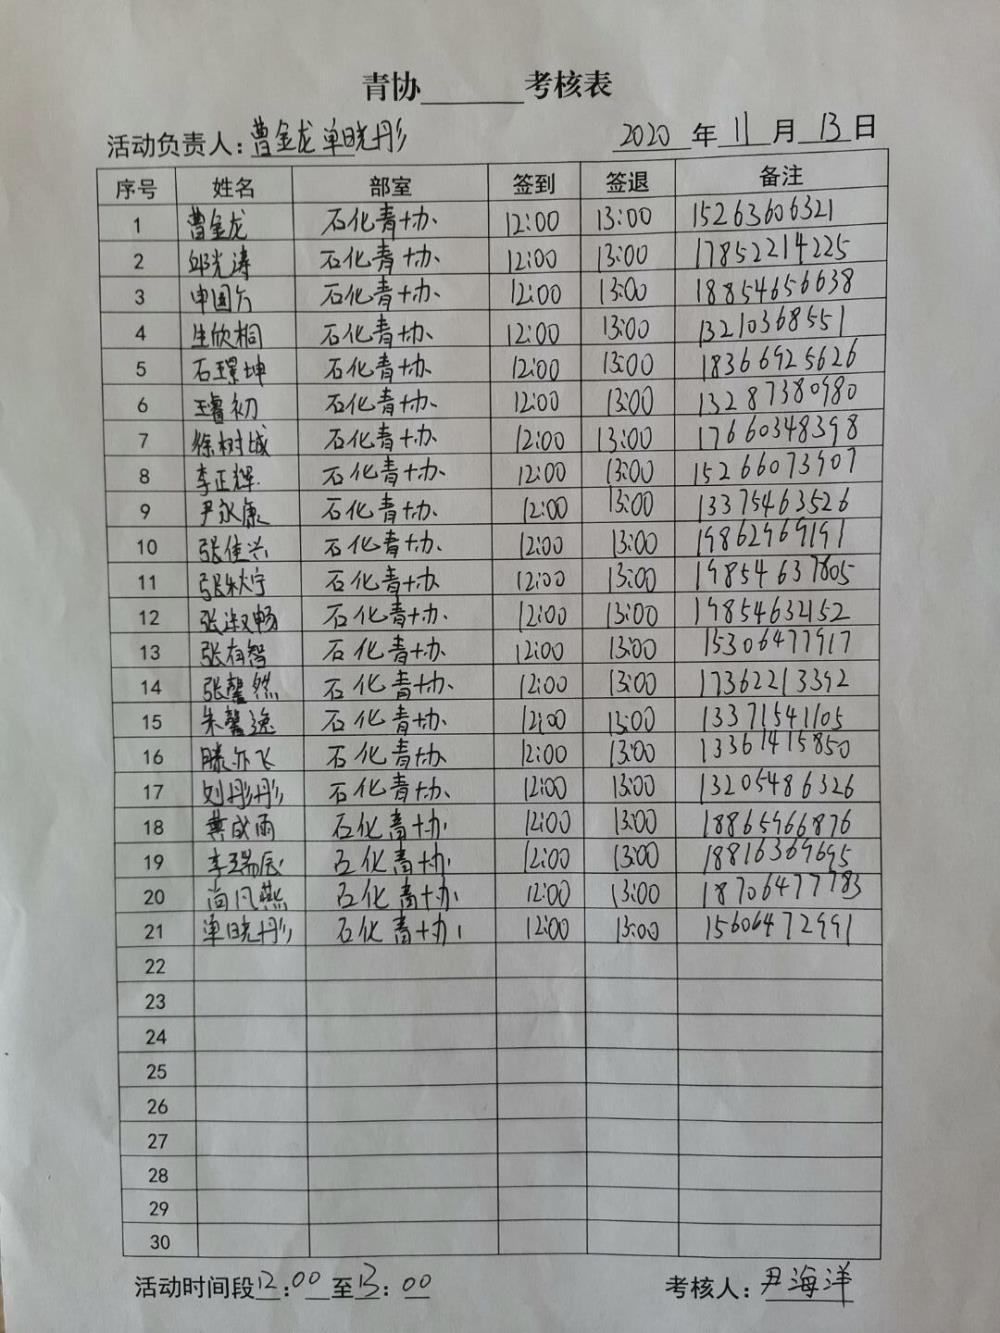 青协______考核表
活动负责人：曹金龙单晓彤 2020 年 11 月 13 日
序号 姓名 部室 签到 签退 备注
1 曹金龙 石化青协 12:00 13:00 15263606321
2 邱光涛 石化青协 12:00 13:00 17852214225
3 申国 石化青协 12:00 13:00 18854656638
4 生欣桐 石化青协 12:00 13:00 13210368551
5 石璟坤 石化青协 12:00 13:00 18366925626
6 王睿初 石化青协 12:00 13:00 13287380980
7 徐树城 石化青协 12:00 13:00 17660348398
8 李正辉 石化青协 12:00 13:00 15266073907
9 尹永康 石化青协 12:00 13:00 13375463526
10 张佳兴 石化青协 12:00 13:00 19862969191
11 张宁 石化青协 12:00 13:00 19854637805
12 张淑畅 石化青协 12:00 13:00 19854632152
13 张存智 石化青协 12:00 13:00 15306477917
14 张馨然 石化青协 12:00 13:00 17362213392
15 朱馨逸 石化青协 12:00 13:00 13371541105
16 滕亦飞 石化青协 12:00 13:00 13361415850
17 刘彤彤 石化青协 12:00 13:00 13205486326
18 龚成雨 石化青协 12:00 13:00 18865966876
19 李瑞辰 石化青协 12:00 13:00 18816369695
20 尚凡燕 石化青协 12:00 13:00 18706477783
21 单晓彤 石化青协 12:00 13:00 15606472991
22
23
24
25
26
27
28
29
30
活动时间段12:00至13:00 考核人：尹海洋